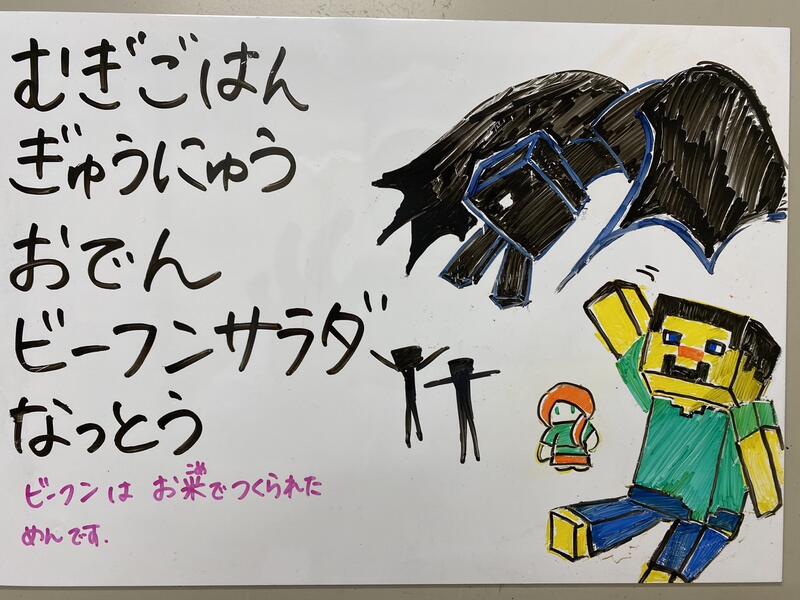 むぎごはん
ぎゅうにゅう
おでん
ビーフンサラダ
なっとう
ビーフンは お米でつくられた
めんです.